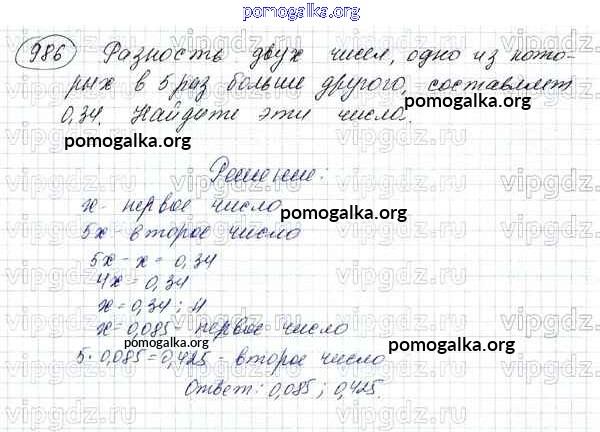 pomogalka.org
986 Разность двух чисел, одно из кото-
рых в 5 раз больше другого, составляет
0,34. Найдите эти число.
pomogalka.org pomogalka.org
Решение:
x - первое число
pomogalka.org
5x - второе число
5x - x = 0,34
4x = 0,34
x = 0,34 : 4
x = 0,085 - первое число
pomogalka.org
5 · 0,085 = 0,425 - второе число
Ответ: 0,085 ; 0,425.
pomogalka.org